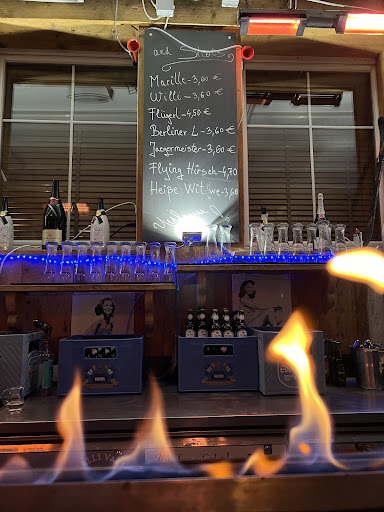 and Shots
Marille-3,60 €
Willi-3,60 €
Flügerl-4,50 €
Berliner L-3,60 €
Jaegermeister-3,60 €
Flying Hirsch-4,70
Heiße Witwe-3,60